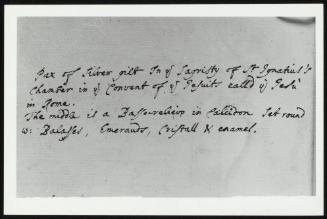 Pax of Silver gilt In yᵉ Sagristy of St Ignatius's
Chamber in yᵉ Convent of yᵉ Jesuits call'd yᵉ Jesù
in Rome.
The middle is a Basso-relievo in Calcidon Set round
wᵗʰ Balasses, Emerauds, Cristall & enamel.